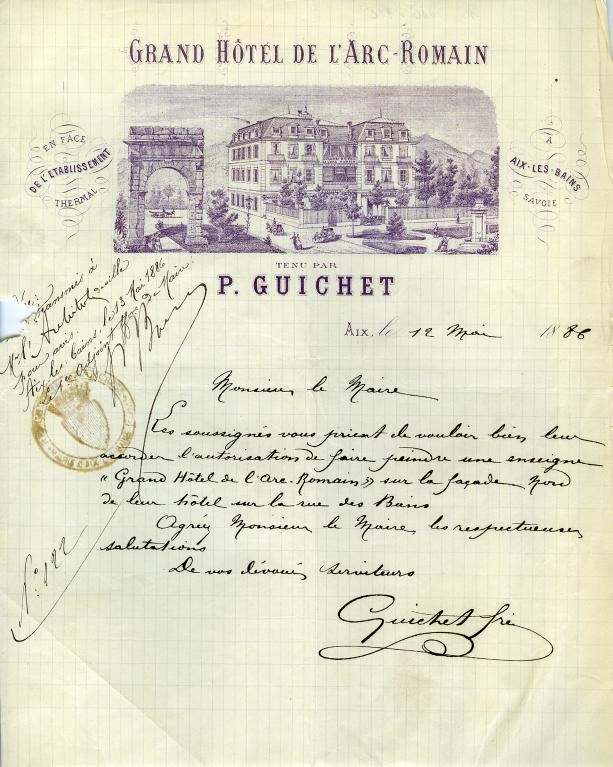 GRAND HÔTEL DE L'ARC-ROMAIN
EN FACE
DE L'ETABLISSEMENT
THERMAL
À
AIX-LES-BAINS
SAVOIE
TENU PAR
P. GUICHET
AIX, le 12 Mai 1886
transmis à
Mr l'Architecte de ville
pour avis.
Aix les Bains, le 13 Mai 1886
de Maire
Monsieur le Maire
Les soussignés vous prient de vouloir bien leur
accorder l'autorisation de faire peindre une enseigne
"Grand Hôtel de l'Arc-Romain" sur la façade Nord
de leur hôtel sur la rue des Bains
Agréez Monsieur le Maire les respectueuses
salutations
De vos dévoués serviteurs
Guichet
No: 122